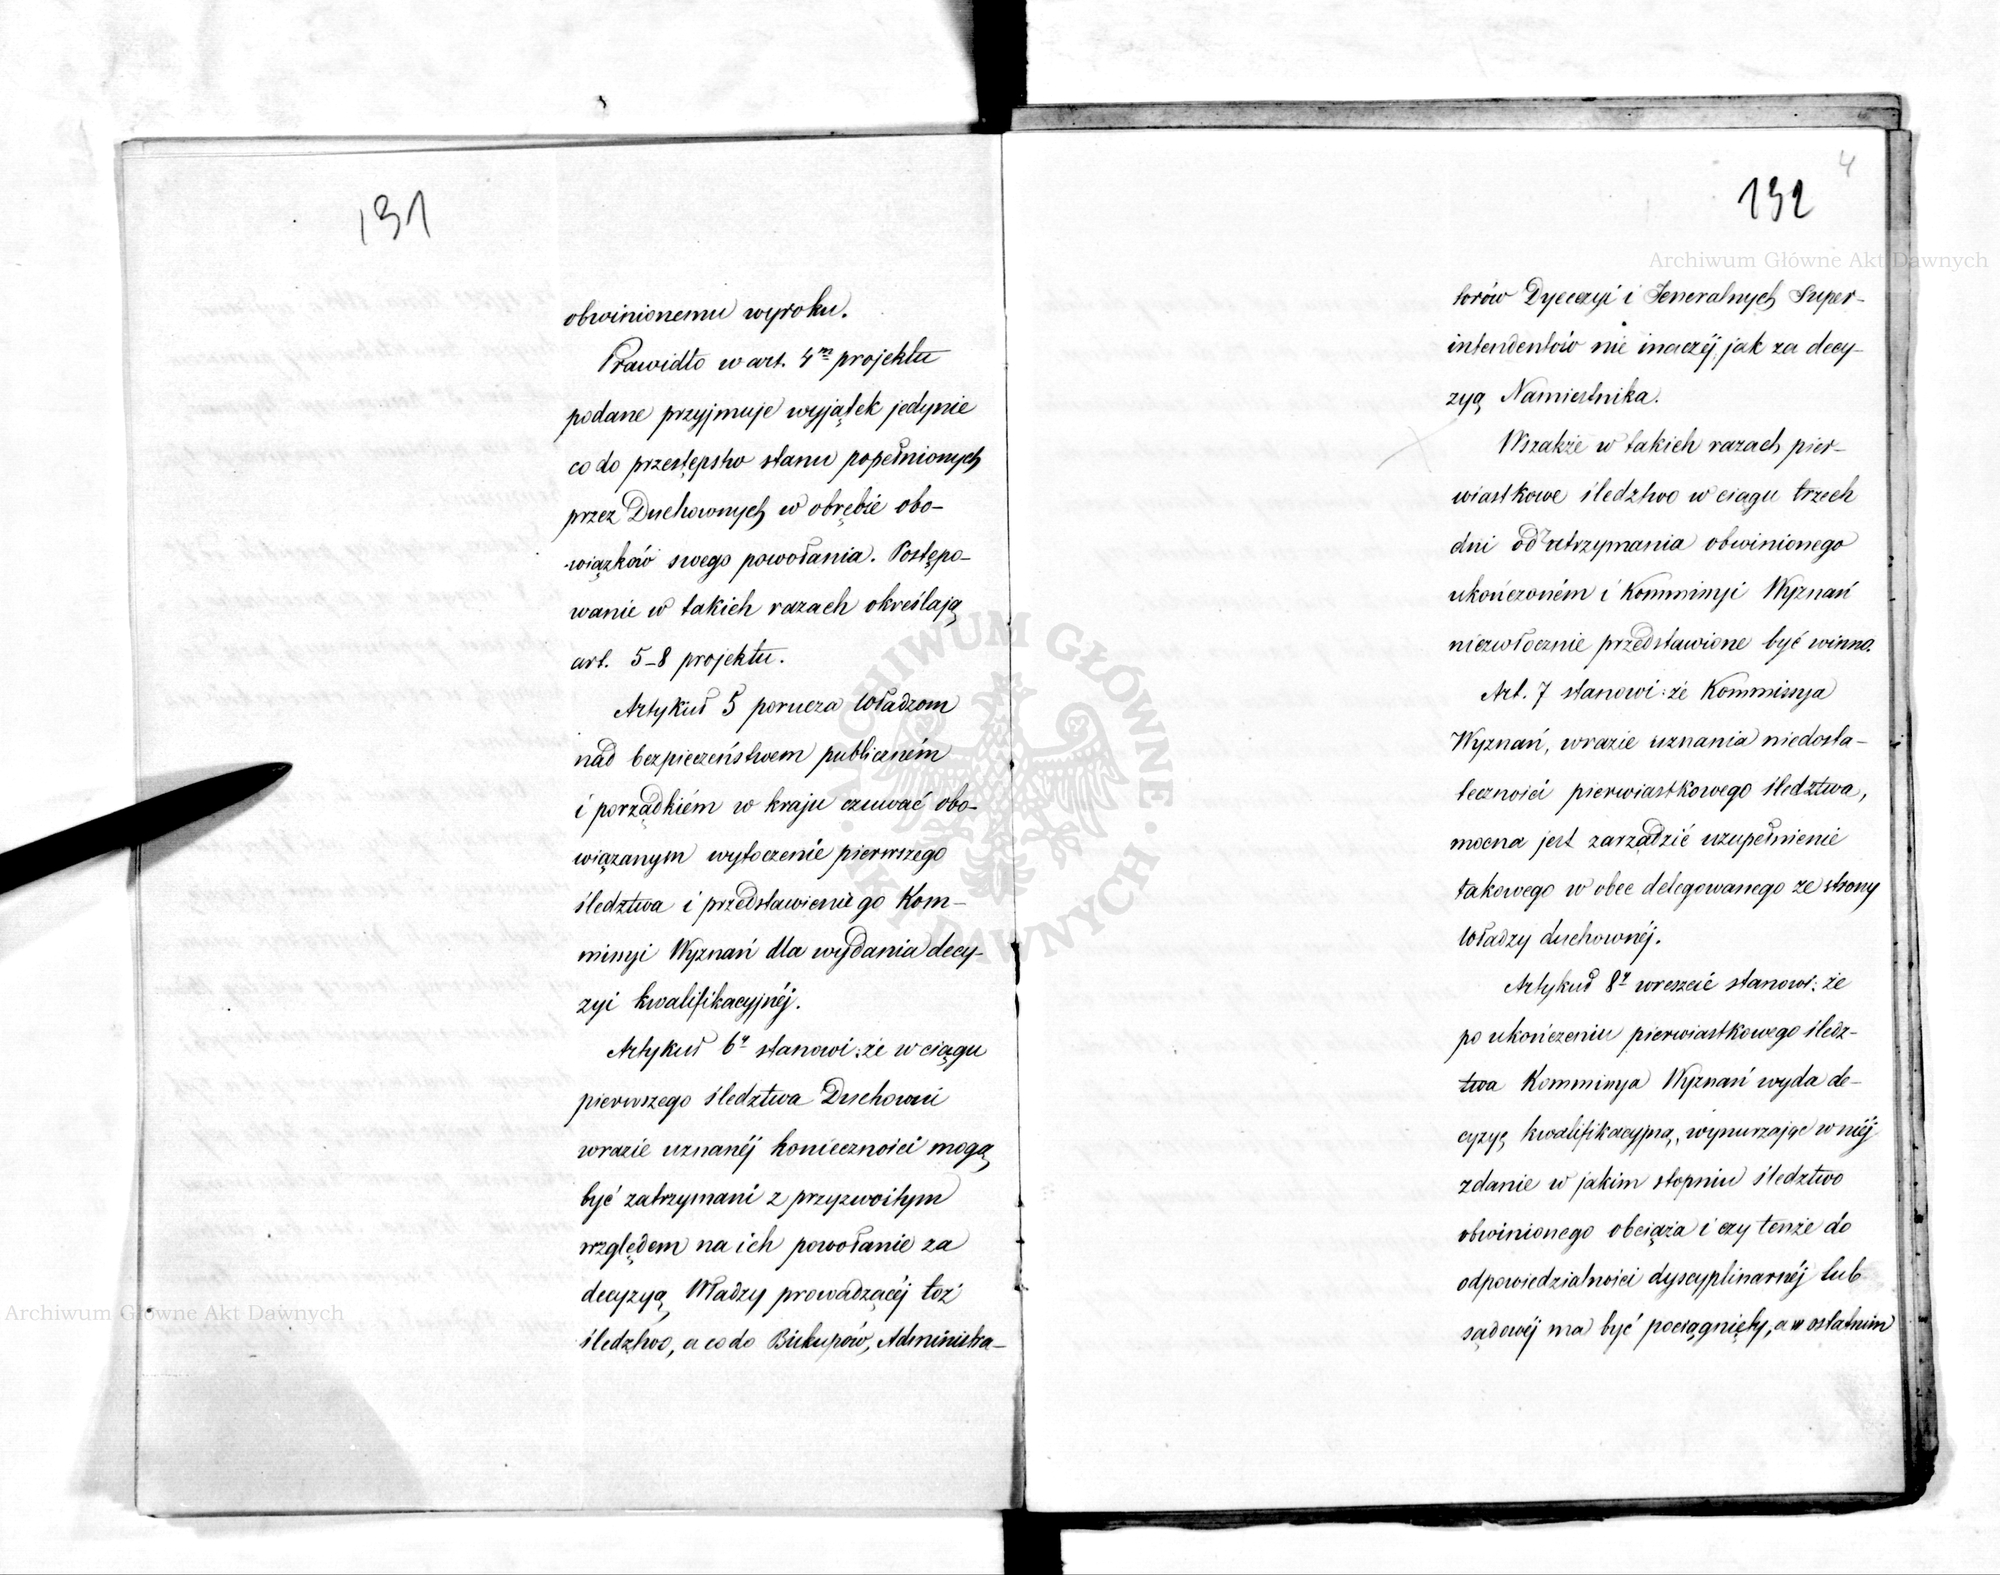 131
obwinionemu wyroku.
Prawidło w art. 4m projektu
podane przyjmuje wyjątek jedynie
co do przestępstw stanu popełnionych
przez Duchownych w obrębie obo-
wiązków swego powołania. Postępo-
wanie w takich razach określają
art. 5-8 projektu.
Artykuł 5 porucza Władzom
nad bezpieczeństwem publiczném
i porządkiém w kraju czuwać obo-
wiązanym wytoczenie pierwszego
śledztwa i przedstawienie go Kom-
missyi Wyznań dla wydania decy-
zyi kwalifikacyjnéj.
Artykuł 6y stanowi: że w ciągu
pierwszego śledztwa Duchowni
w razie uznanéj konieczności mogą
być zatrzymani z przyzwoitym
względem na ich powołanie za
decyzyą Władzy prowadzącéj toż
śledztwo, a co do Biskupów, Administra-
4
132
torów Dyecezyi i Jeneralnych Super-
intendentów nie inaczéj jak za decy-
zyą Namiestnika.
Wszakże w takich razach pier-
wiastkowe śledztwo w ciągu trzech
dni od zatrzymania obwinionego
ukończoném i Kommissyi Wyznań
niezwłocznie przedstawione być winno.
Art. 7 stanowi: że Kommissya
Wyznań, w razie uznania niedosta-
teczności pierwiastkowego śledztwa,
mocna jest zarządzić uzupełnienie
takowego w obec delegowanego ze strony
Władzy duchownéj.
Artykuł 8y wreszcie stanowi: że
po ukończeniu pierwiastkowego śledz-
twa Kommissya Wyznań wyda de-
cyzyę kwalifikacyjną, wynurzając w niéj
zdanie w jakim stopniu śledztwo
obwinionego obciąża i czy tenże do
odpowiedzialności dyscyplinarnéj lub
sądowéj ma być pociągnięty, a w ostatnim
Archiwum Główne Akt Dawnych
Archiwum Główne Akt Dawnych
ARCHIWUM GŁÓWNE AKT DAWNYCH